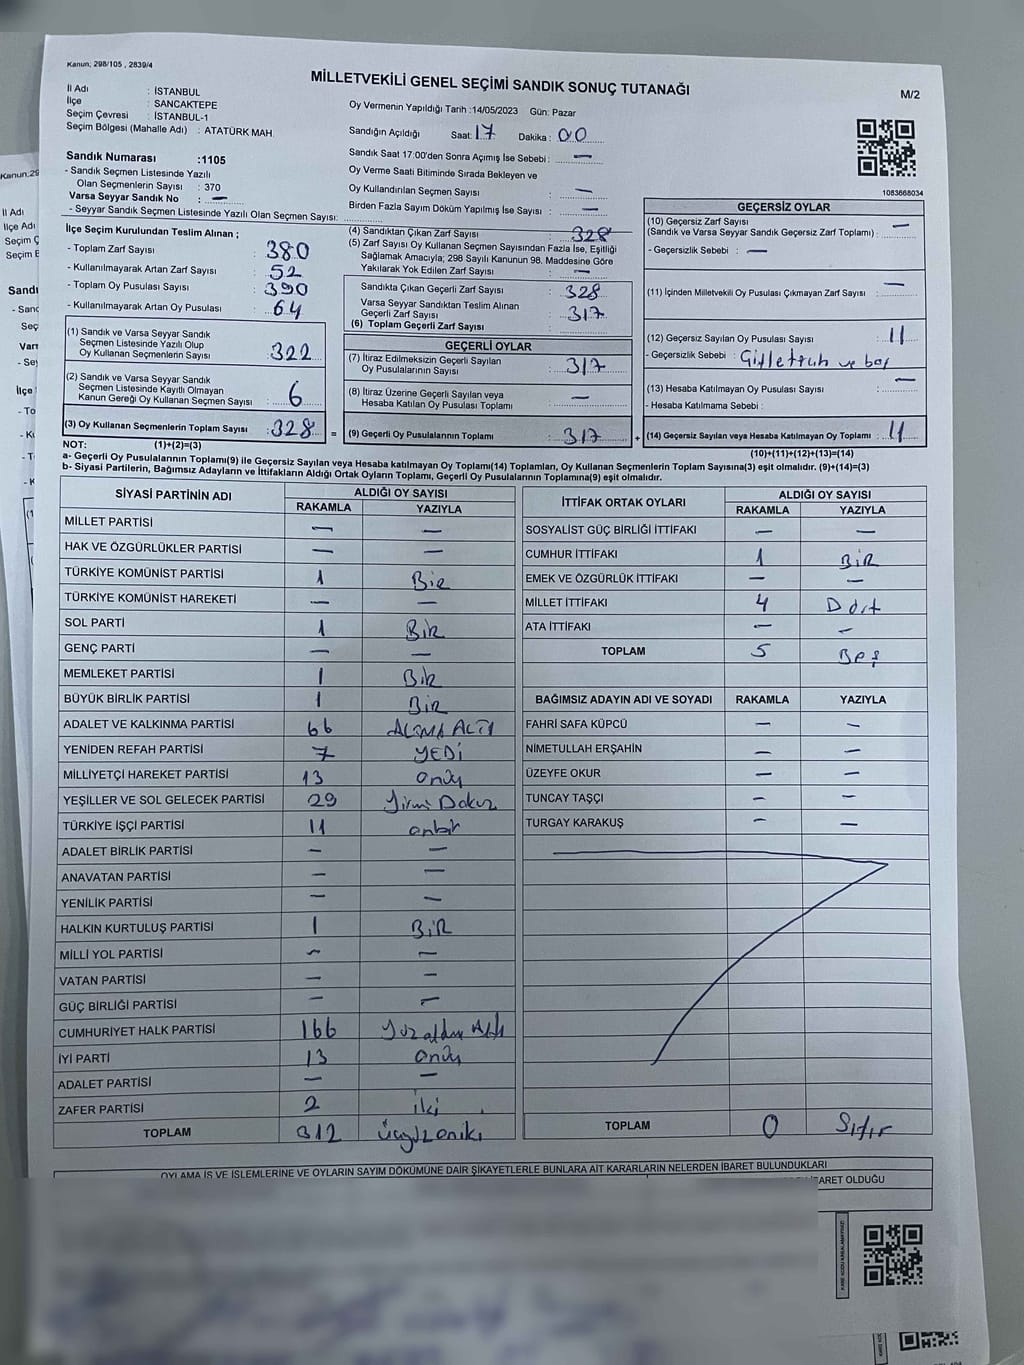 Kanun; 298/105 , 2839/4
MİLLETVEKİLİ GENEL SEÇİMİ SANDIK SONUÇ TUTANAĞI
M/2
İl Adı : İSTANBUL
İlçe : SANCAKTEPE
Seçim Çevresi : İSTANBUL-1
Seçim Bölgesi (Mahalle Adı) : ATATÜRK MAH.
Oy Vermenin Yapıldığı Tarih :14/05/2023 Gün: Pazar
Sandığın Açıldığı Saat: 17 Dakika : 00
Sandık Saat 17:00'den Sonra Açımış İse Sebebi : —
Oy Verme Saati Bitiminde Sırada Bekleyen ve
Oy Kullandırılan Seçmen Sayısı —
Birden Fazla Sayım Döküm Yapılmış İse Sayısı : —
Sandık Numarası :1105
- Sandık Seçmen Listesinde Yazılı
Olan Seçmenlerin Sayısı : 370
Varsa Seyyar Sandık No : —
- Seyyar Sandık Seçmen Listesinde Yazılı Olan Seçmen Sayısı:
1083668034
İlçe Seçim Kurulundan Teslim Alınan ;
- Toplam Zarf Sayısı : 380
- Kullanılmayarak Artan Zarf Sayısı : 52
- Toplam Oy Pusulası Sayısı : 390
- Kullanılmayarak Artan Oy Pusulası : 64
(1) Sandık ve Varsa Seyyar Sandık
Seçmen Listesinde Yazılı Olup
Oy Kullanan Seçmenlerin Sayısı : 322
(2) Sandık ve Varsa Seyyar Sandık
Seçmen Listesinde Kayıtlı Olmayan
Kanun Gereği Oy Kullanan Seçmen Sayısı : 6
(3) Oy Kullanan Seçmenlerin Toplam Sayısı : 328 =
(4) Sandıktan Çıkan Zarf Sayısı : 328
(5) Zarf Sayısı Oy Kullanan Seçmen Sayısından Fazla İse, Eşitliği
Sağlamak Amacıyla; 298 Sayılı Kanunun 98. Maddesine Göre
Yakılarak Yok Edilen Zarf Sayısı : —
Sandıkta Çıkan Geçerli Zarf Sayısı : 328
Varsa Seyyar Sandıktan Teslim Alınan
Geçerli Zarf Sayısı : 317
(6) Toplam Geçerli Zarf Sayısı :
GEÇERLİ OYLAR
(7) İtiraz Edilmeksizin Geçerli Sayılan
Oy Pusulalarının Sayısı : 317
(8) İtiraz Üzerine Geçerli Sayılan veya
Hesaba Katılan Oy Pusulası Toplamı : —
(9) Geçerli Oy Pusulalarının Toplamı : 317 +
GEÇERSİZ OYLAR
(10) Geçersiz Zarf Sayısı
(Sandık ve Varsa Seyyar Sandık Geçersiz Zarf Toplamı) : —
- Geçersizlik Sebebi : —
(11) İçinden Milletvekili Oy Pusulası Çıkmayan Zarf Sayısı : —
(12) Geçersiz Sayılan Oy Pusulası Sayısı : 11
- Geçersizlik Sebebi : ve boş
(13) Hesaba Katılmayan Oy Pusulası Sayısı : —
- Hesaba Katılmama Sebebi :
(14) Geçersiz Sayılan veya Hesaba Katılmayan Oy Toplamı : 11
NOT: (1)+(2)=(3)
(10)+(11)+(12)+(13)=(14)
a- Geçerli Oy Pusulalarının Toplamı(9) ile Geçersiz Sayılan veya Hesaba katılmayan Oy Toplamı(14) Toplamları, Oy Kullanan Seçmenlerin Toplam Sayısına(3) eşit olmalıdır. (9)+(14)=(3)
b- Siyasi Partilerin, Bağımsız Adayların ve İttifakların Aldığı Ortak Oyların Toplamı, Geçerli Oy Pusulalarının Toplamına(9) eşit olmalıdır.
SİYASİ PARTİNİN ADI ALDIĞI OY SAYISI
RAKAMLA YAZIYLA
MİLLET PARTİSİ — —
HAK VE ÖZGÜRLÜKLER PARTİSİ — —
TÜRKİYE KOMÜNİST PARTİSİ 1 Bir
TÜRKİYE KOMÜNİST HAREKETİ — —
SOL PARTİ 1 BiR
GENÇ PARTİ — —
MEMLEKET PARTİSİ 1 BiR
BÜYÜK BİRLİK PARTİSİ 1 BiR
ADALET VE KALKINMA PARTİSİ 66 ALTMIŞ ALTI
YENİDEN REFAH PARTİSİ 7 YEDİ
MİLLİYETÇİ HAREKET PARTİSİ 13 onüç
YEŞİLLER VE SOL GELECEK PARTİSİ 29 Yirmi Dokuz
TÜRKİYE İŞÇİ PARTİSİ 11 onbir
ADALET BİRLİK PARTİSİ — —
ANAVATAN PARTİSİ — —
YENİLİK PARTİSİ — —
HALKIN KURTULUŞ PARTİSİ 1 BiR
MİLLİ YOL PARTİSİ — —
VATAN PARTİSİ — —
GÜÇ BİRLİĞİ PARTİSİ — —
CUMHURİYET HALK PARTİSİ 166 Yüzaltmış Altı
İYİ PARTİ 13 onüç
ADALET PARTİSİ — —
ZAFER PARTİSİ 2 iki
TOPLAM 312 üçyüzoniki
İTTİFAK ORTAK OYLARI ALDIĞI OY SAYISI
RAKAMLA YAZIYLA
SOSYALİST GÜÇ BİRLİĞİ İTTİFAKI — —
CUMHUR İTTİFAKI 1 BİR
EMEK VE ÖZGÜRLÜK İTTİFAKI — —
MİLLET İTTİFAKI 4 Dört
ATA İTTİFAKI — —
TOPLAM 5 Beş
BAĞIMSIZ ADAYIN ADI VE SOYADI RAKAMLA YAZIYLA
FAHRİ SAFA KÜPCÜ — —
NİMETULLAH ERŞAHİN — —
ÜZEYFE OKUR — —
TUNCAY TAŞÇI — —
TURGAY KARAKUŞ — —
TOPLAM 0 Sıfır
OYLAMA İŞ VE İŞLEMLERİNE VE OYLARIN SAYIM DÖKÜMÜNE DAİR ŞİKAYETLERLE BUNLARA AİT KARARLARIN NELERDEN İBARET BULUNDUKLARI
OLDUĞU
Kanun; 29
İl Adı
İlçe Adı
Seçim Ç
Seçim B
Sandı
- Sand
Seç
Vars
- Sey
İlçe
- To